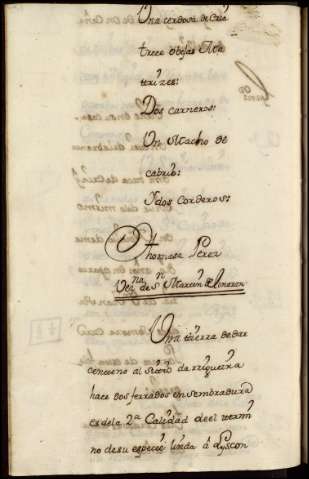 Una cerdova de Cria
trece obejas Ma
trizes:
Dos carneros:
Un Macho de
cabrio:
Y dos Corderos:
Thomasa Perez
Vez.na de S.n Martin de
Una tierra de dar
centeno al Sitio da
hace dos ferrados en sembradura
es dela 2.a Calidad de el termi
no de su especie, linda á